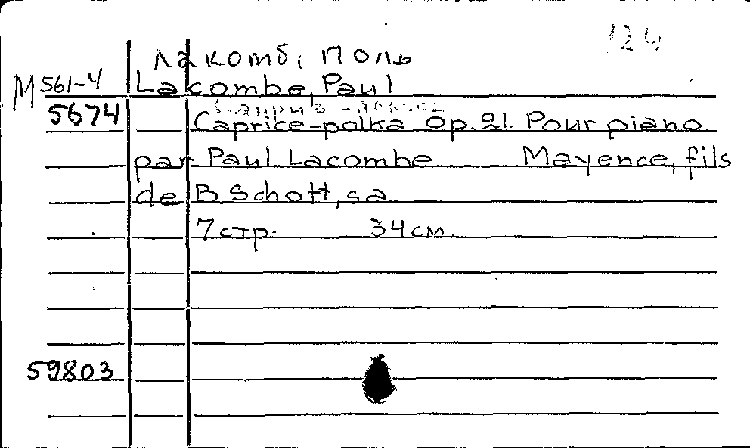 124
Лакомб, Поль
М 561-4 Lacombe, Paul
5674 Caprice-polka Op. 21. Pour piano
par Paul Lacombe Mayence, fils
de B. Schott, s.a.
7 стр. 34 см.
59803